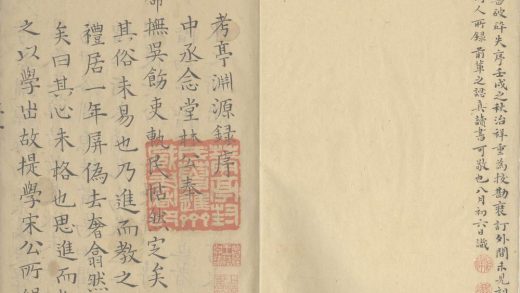 破碎失序壬戌之秋治祥重為校勘裝訂外間未見
人所錄前輩之認真讀書可敬也八月初六日識
考亭淵源錄序
中丞念堂林公奉
命撫吳飭吏軌民帖然定矣
其俗未易也乃進而教之
禮居一年屏偽去奢翕然
矣曰其心未格也思進而
之以學出故提學宋公所